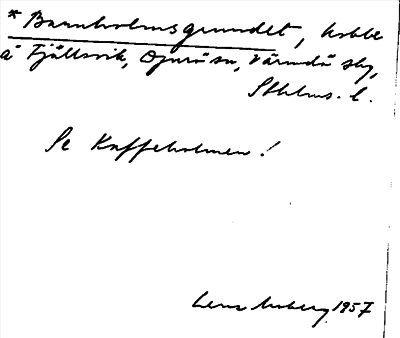 * Bannholmsgrundet, kobbe
å Fjällsvik, Ojurö sn, Värmdö skg,
Sthlms. l.
Se Kaffeholmen!
1957